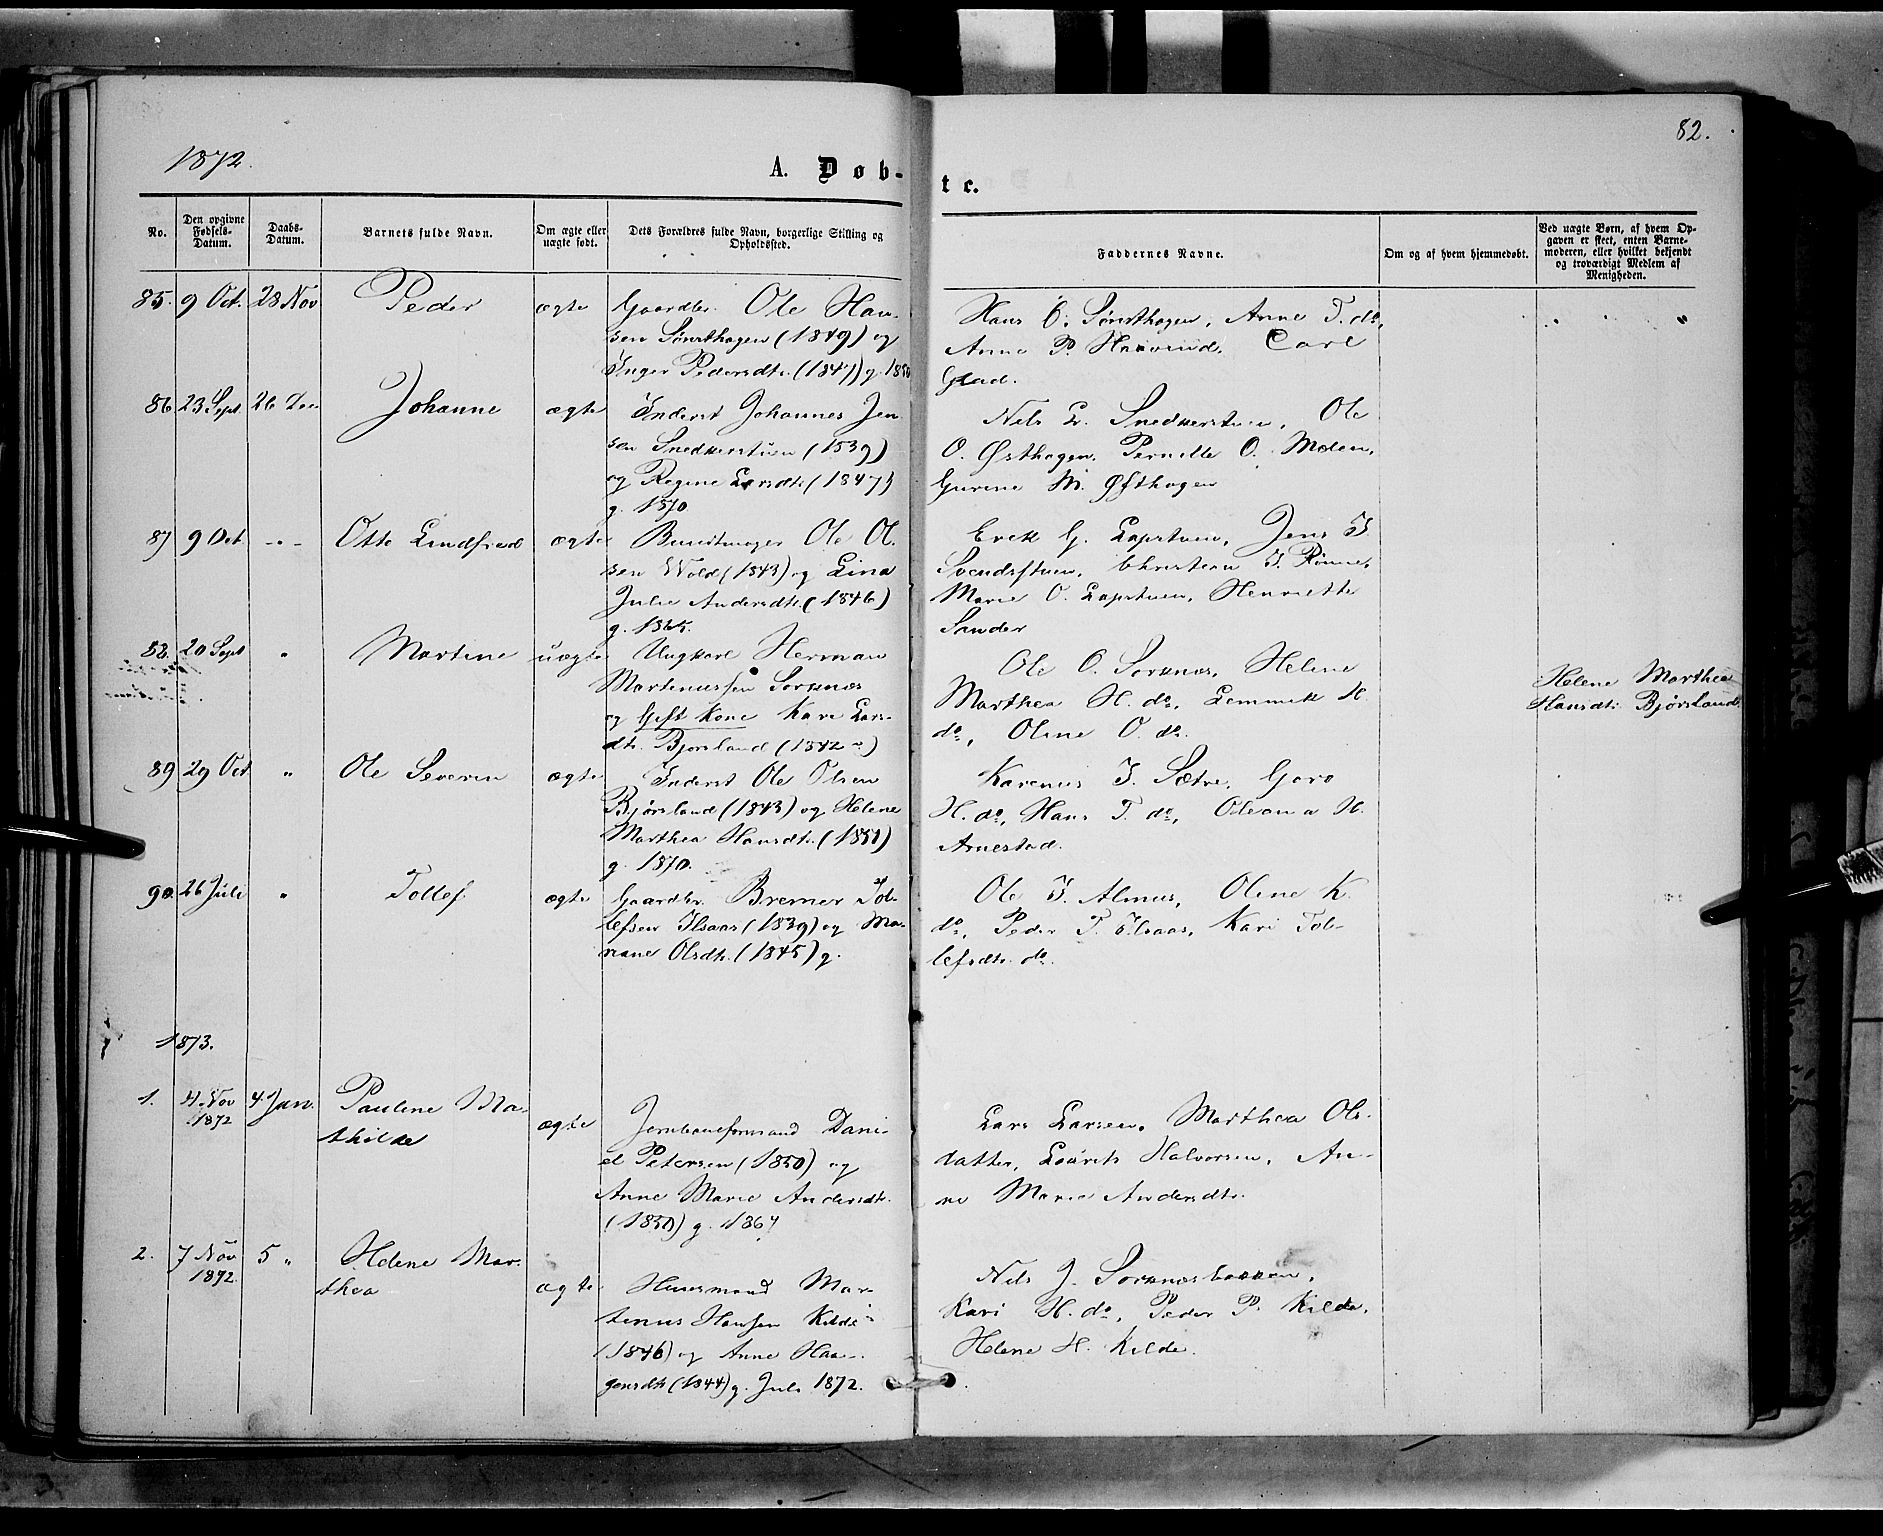 82.
1872.
A. Døb-
te.
No.
Den opgivne Fødsels-Datum.
Daabs-Datum.
Barnets fulde Navn.
Om ægte eller uægte født.
Dets Forældres fulde Navn, borgerlige Stilling og Opholdssted.
Faddernes Navne.
Om og af hvem hjemmedøbt.
Ved uægte Børn, af hvem Opgaven er skeet, enten Barnemoderen, eller hvilket bekjendt og troværdigt Medlem af Menigheden.
85. 9 Oct. 28 Nov Peder ægte Gaardbr. Ole Han-
sen Sønsthagen (1849) og
Inger Pedersdtr. (1847) g. 1850
Hans O. Sønsthagen, Anne T. do,
Anne P. Carl
Glad.
86 23 Sept 26 Dec Johanne ægte Inderst Johannes Jen
sen Snedkerstuen (1839)
og Regine Larsdtr (1847)
g. 1870
Nils L. Snedkerstuen, Ole
O. Østhagen, Pernille O. Moden,
Gurine M. Østhagen
87 9 Oct. - " - Otto Lindfred ægte Buntmager Ole Ol.
sen Wold (1843) og Lina
Julie Andersdtr. (1846)
g. 1865.
Erek G. Lapstuen, Jens J
Svendsstuen, Christian J. Rønne,
Marie O. Lapstuen, Henriette
Sander
88. 20 Sept " Martine uægte Ungkarl Herman
Martinussen Sorknæs
og Gift Kone Kari Lars-
dtr. Bjørsland (1842 - )
Ole O. Sorknæs, Helene
Marthea H. do, Lemmik H.
do, Oline O. do.
Helene Marthea
Hansdtr. Bjørsland
89 29 Oct " Ole Severin ægte Inderst Ole Olsen
Bjørsland (1843) og Helene
Marthea Hansdtr. (1851)
g. 1870.
Karenus J. Sætre, Goro
H. do, Hans T. do, Oleana H.
Arnestad.
90. 26 Juli " Tollef ægte Gaardbr. Bremer Tol-
lefsen Ilsaas (1839) og Ma-
riane Olsdtr. (1845) g.
Ole J. Almus, Oline K.
do, Peder T. Ilsaas, Kari Tol-
lefsdtr. do.
1873.
1. 4. Nov 1872 4 Jan. Pauline Ma-
thilde ægte Jernbaneformand Dani-
el Petersen (1850) og
Anne Marie Andersdtr.
(1850) g. 1867
Lars Larsen, Marthea Ols-
datter, Lauritz Halvorsen, An-
ne Marie Andersdtr.
2. 7 Nov 1872. 5 " Helene Mar-
thea ægte Huusmand Mar-
tinus Hansen Kilde
(1846) og Anne Haa-
gensdtr (1844) g. Juli 1872.
Nils J. Sorknæsbakken,
Kari H. do, Peder P. Kilde,
Helene H. Kilde.